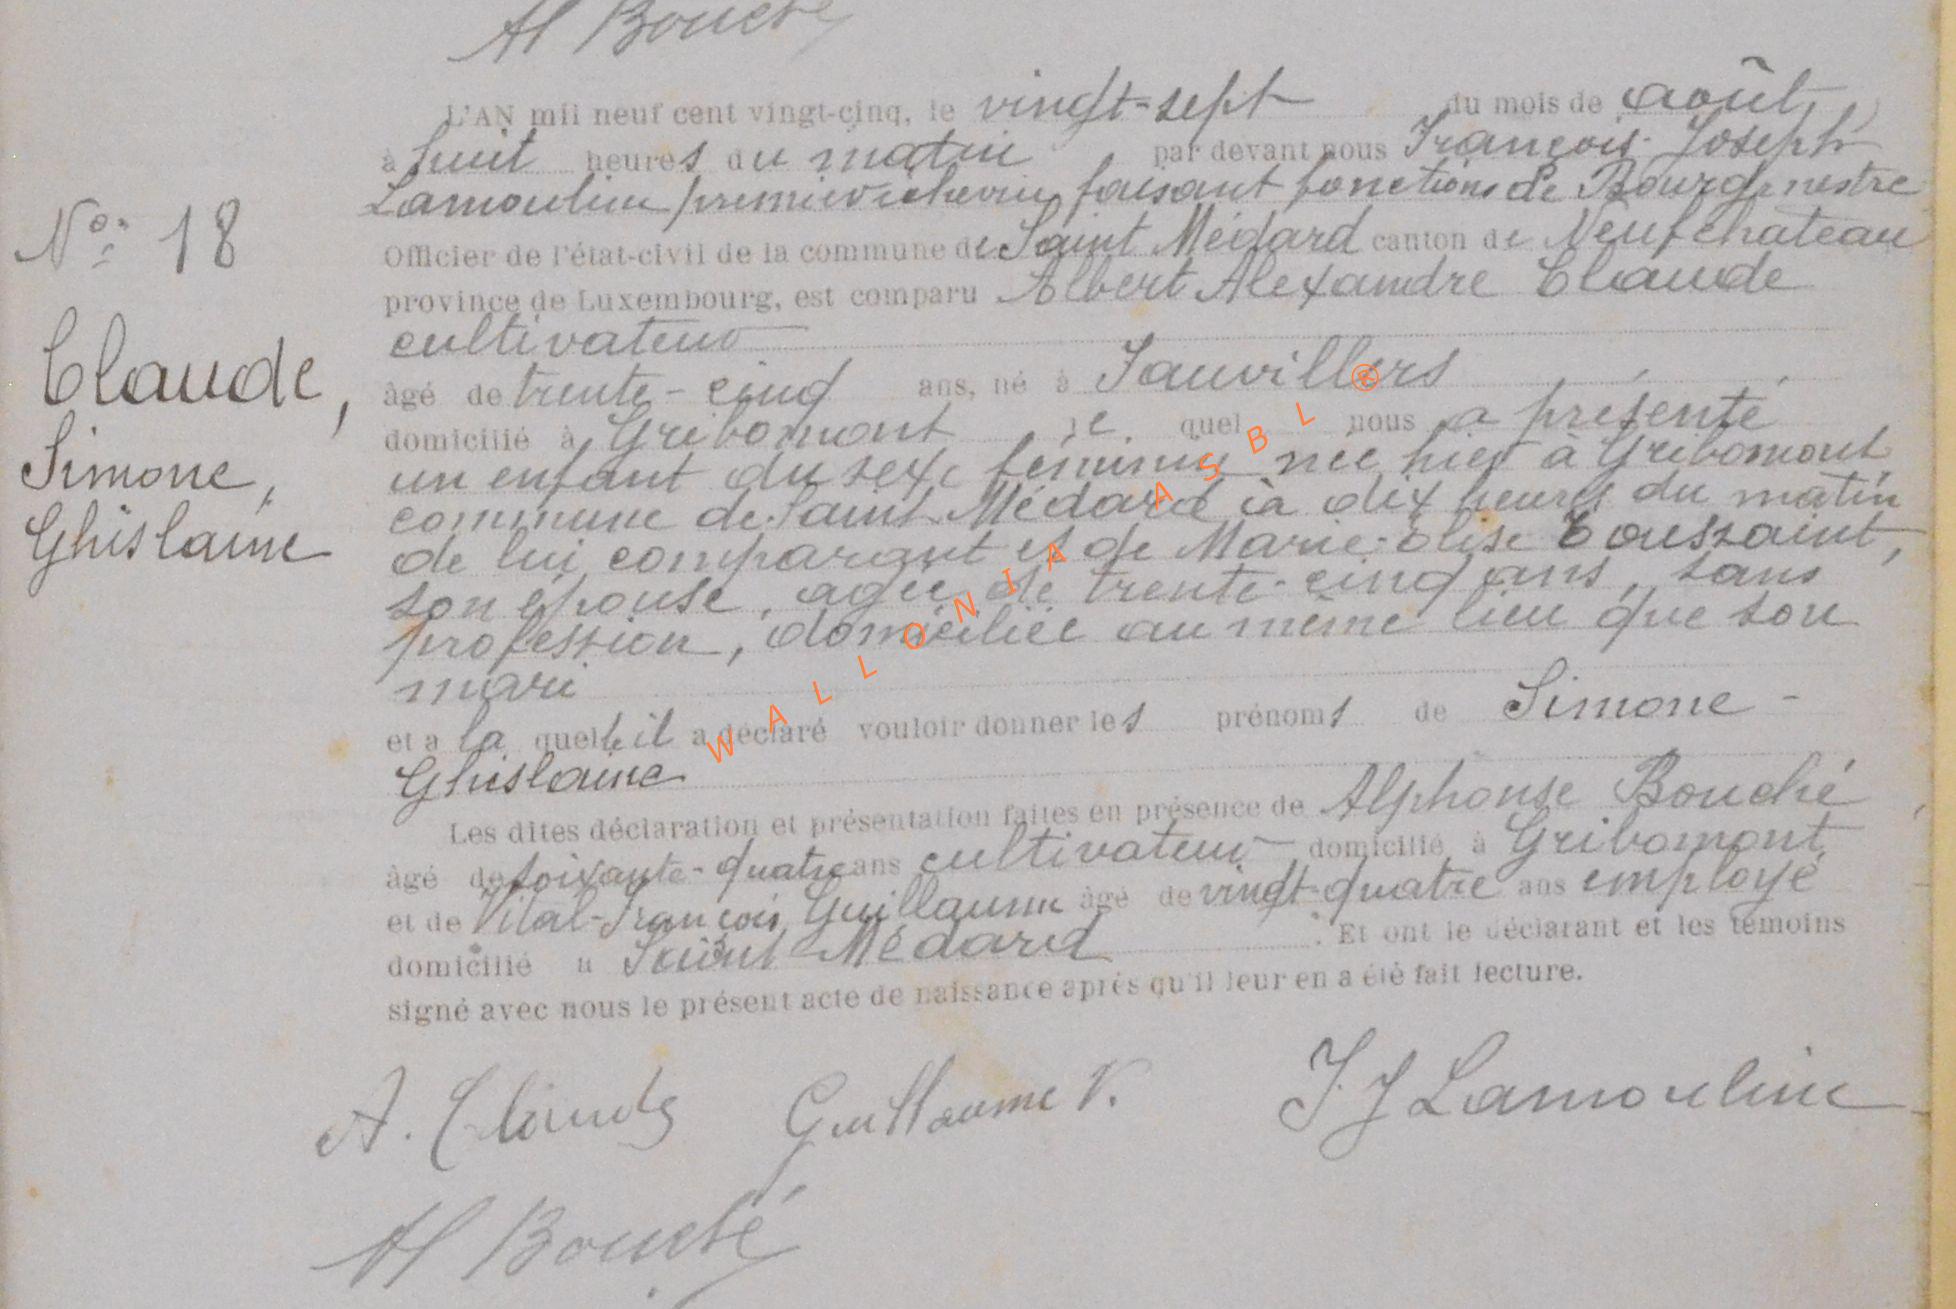 Al Bouché
L'AN mil neuf cent vingt-cinq, le vingt-sept du mois de août,
à huit heures du matin par devant nous François-Joseph
Lamouline premier échevin faisant fonctions de Bourgmestre
Officier de l'état-civil de la commune de Saint Médard canton de Neufchateau
province de Luxembourg, est comparu Albert Alexandre Claude
cultivateur
âgé de trente-cinq ans, né à Fauvillers
domicilié à Gribomont le quel nous a présenté
un enfant du sexe féminin née hier à Gribomont
commune de Saint Médard à dix heures du matin
de lui comparant et de Marie-Elise Toussaint,
son épouse, agée de trente-cinq ans, sans
profession, domiciliée au même lieu que son
mari
et a la quelle il a déclaré vouloir donner les prénoms de Simone -
Ghislaine
Les dites déclaration et présentation faites en présence de Alphonse Bouché
âgé de soixante-quatre ans cultivateur domicilié à Gribomont
et de Vital-François Guillaume âgé de vingt-quatre ans employé
domicilié à Saint Médard . Et ont le déclarant et les témoins
signé avec nous le présent acte de naissance après qu'il leur en a été fait lecture.
N°: 18
Claude,
Simone,
Ghislaine
A. Claude Guillaume V. F. J Lamouline
Al Bouché
WALLONIA ASBL ®